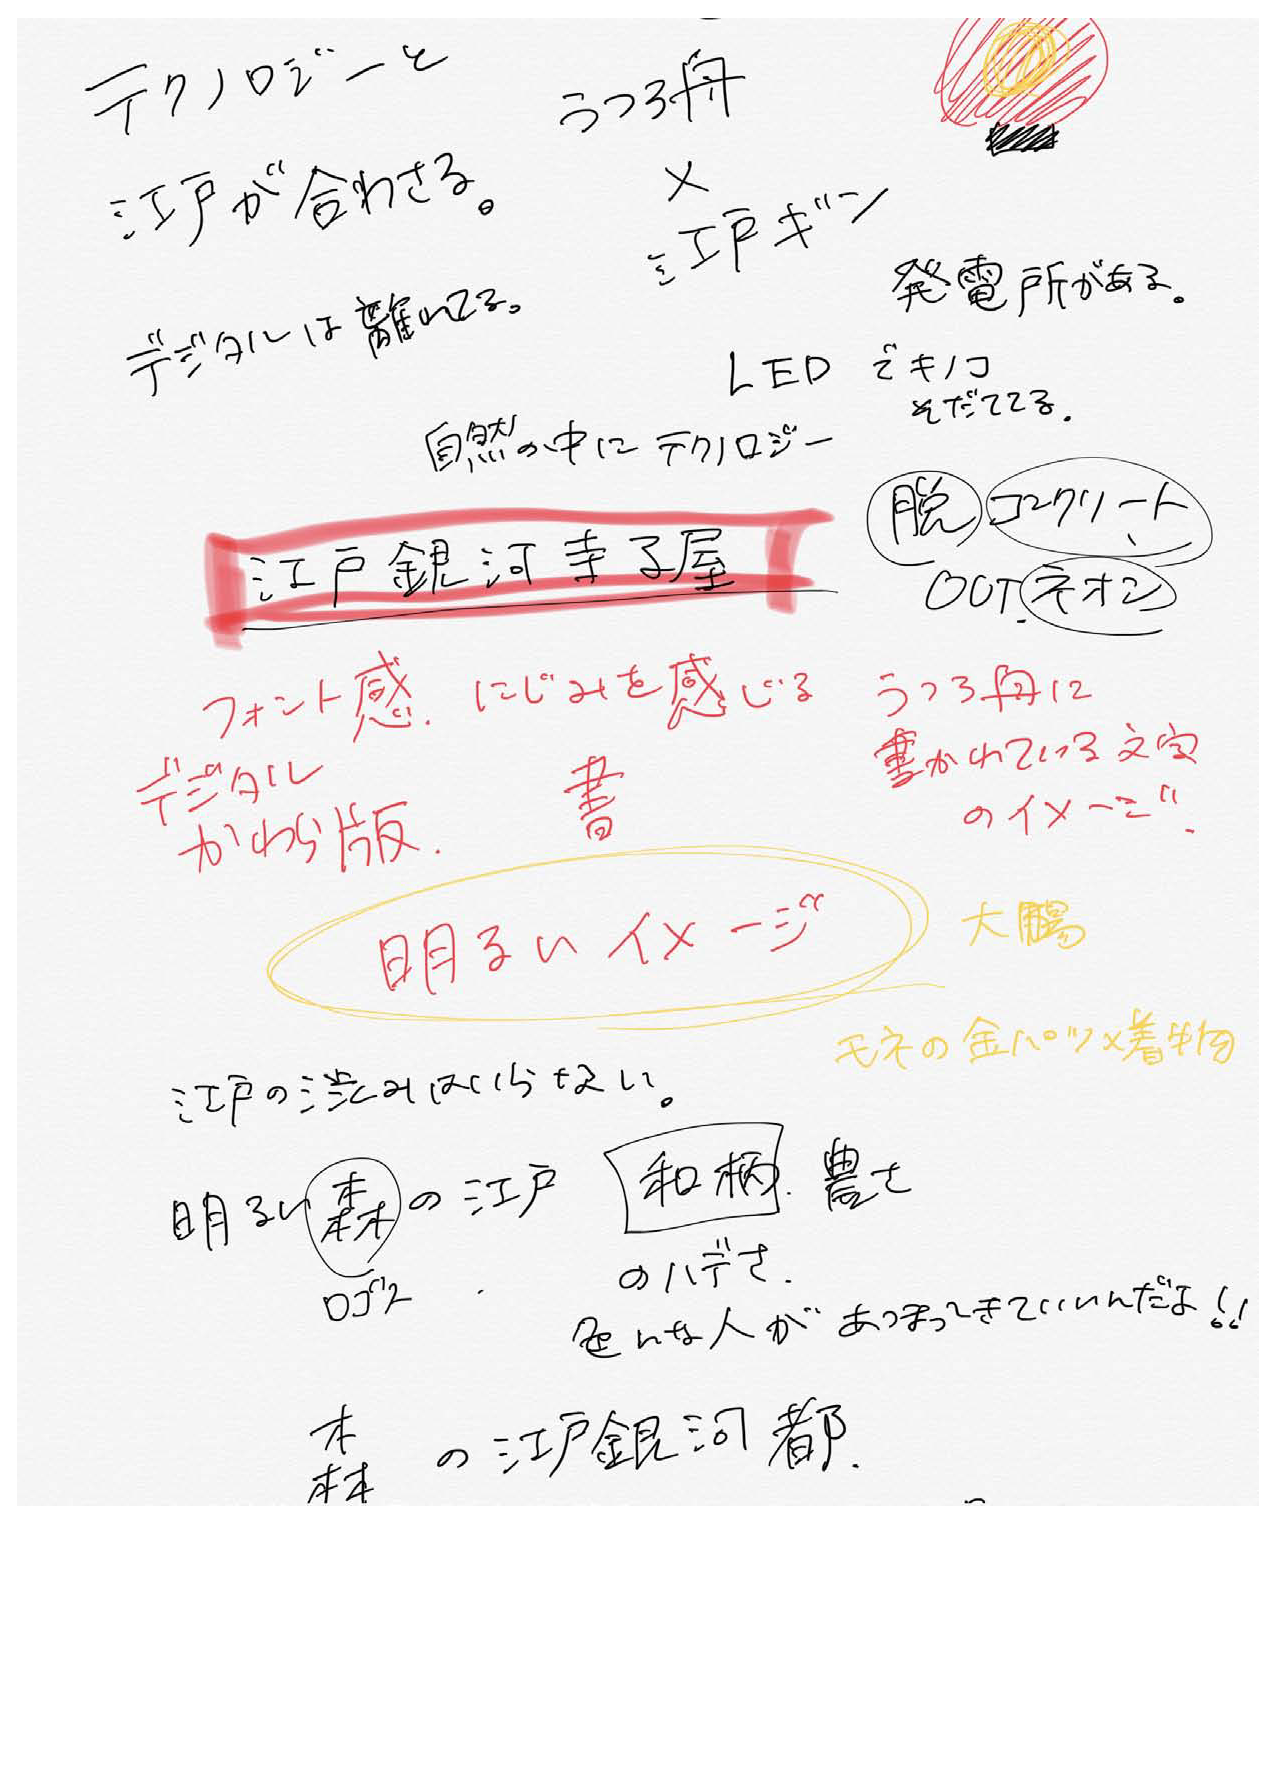 テクノロジーと
江戸が合わさる。
うつろ舟
×
江戸ギン
デジタルは離れてる。
発電所がある。
LEDでキノコ
そだててる.
自然の中にテクノロジー
脱コンクリート、
OUT.ネオン
江戸銀河寺子屋
フォント感.
にじみを感じる
うつろ舟に
書かれている文字
のイメージ.
デジタル
かわら版.
書
明るいイメージ
太陽
モネの金パツ×着物
江戸の渋みはいらない。
明るい森の江戸
ロゴ
和柄.豊さ
のハデさ.
色んな人があつまってきていいんだよ!!
森の江戸銀河都.